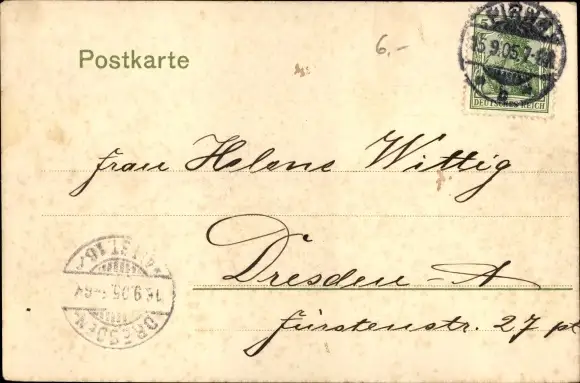 Postkarte
6.-
5
15.9.05.7-
b
DEUTSCHES REICH
Frau Helene Wittig
Dresden-A
Fürstenstr. 27 pt
DRESDEN-ALTST. 16
15.9.05.